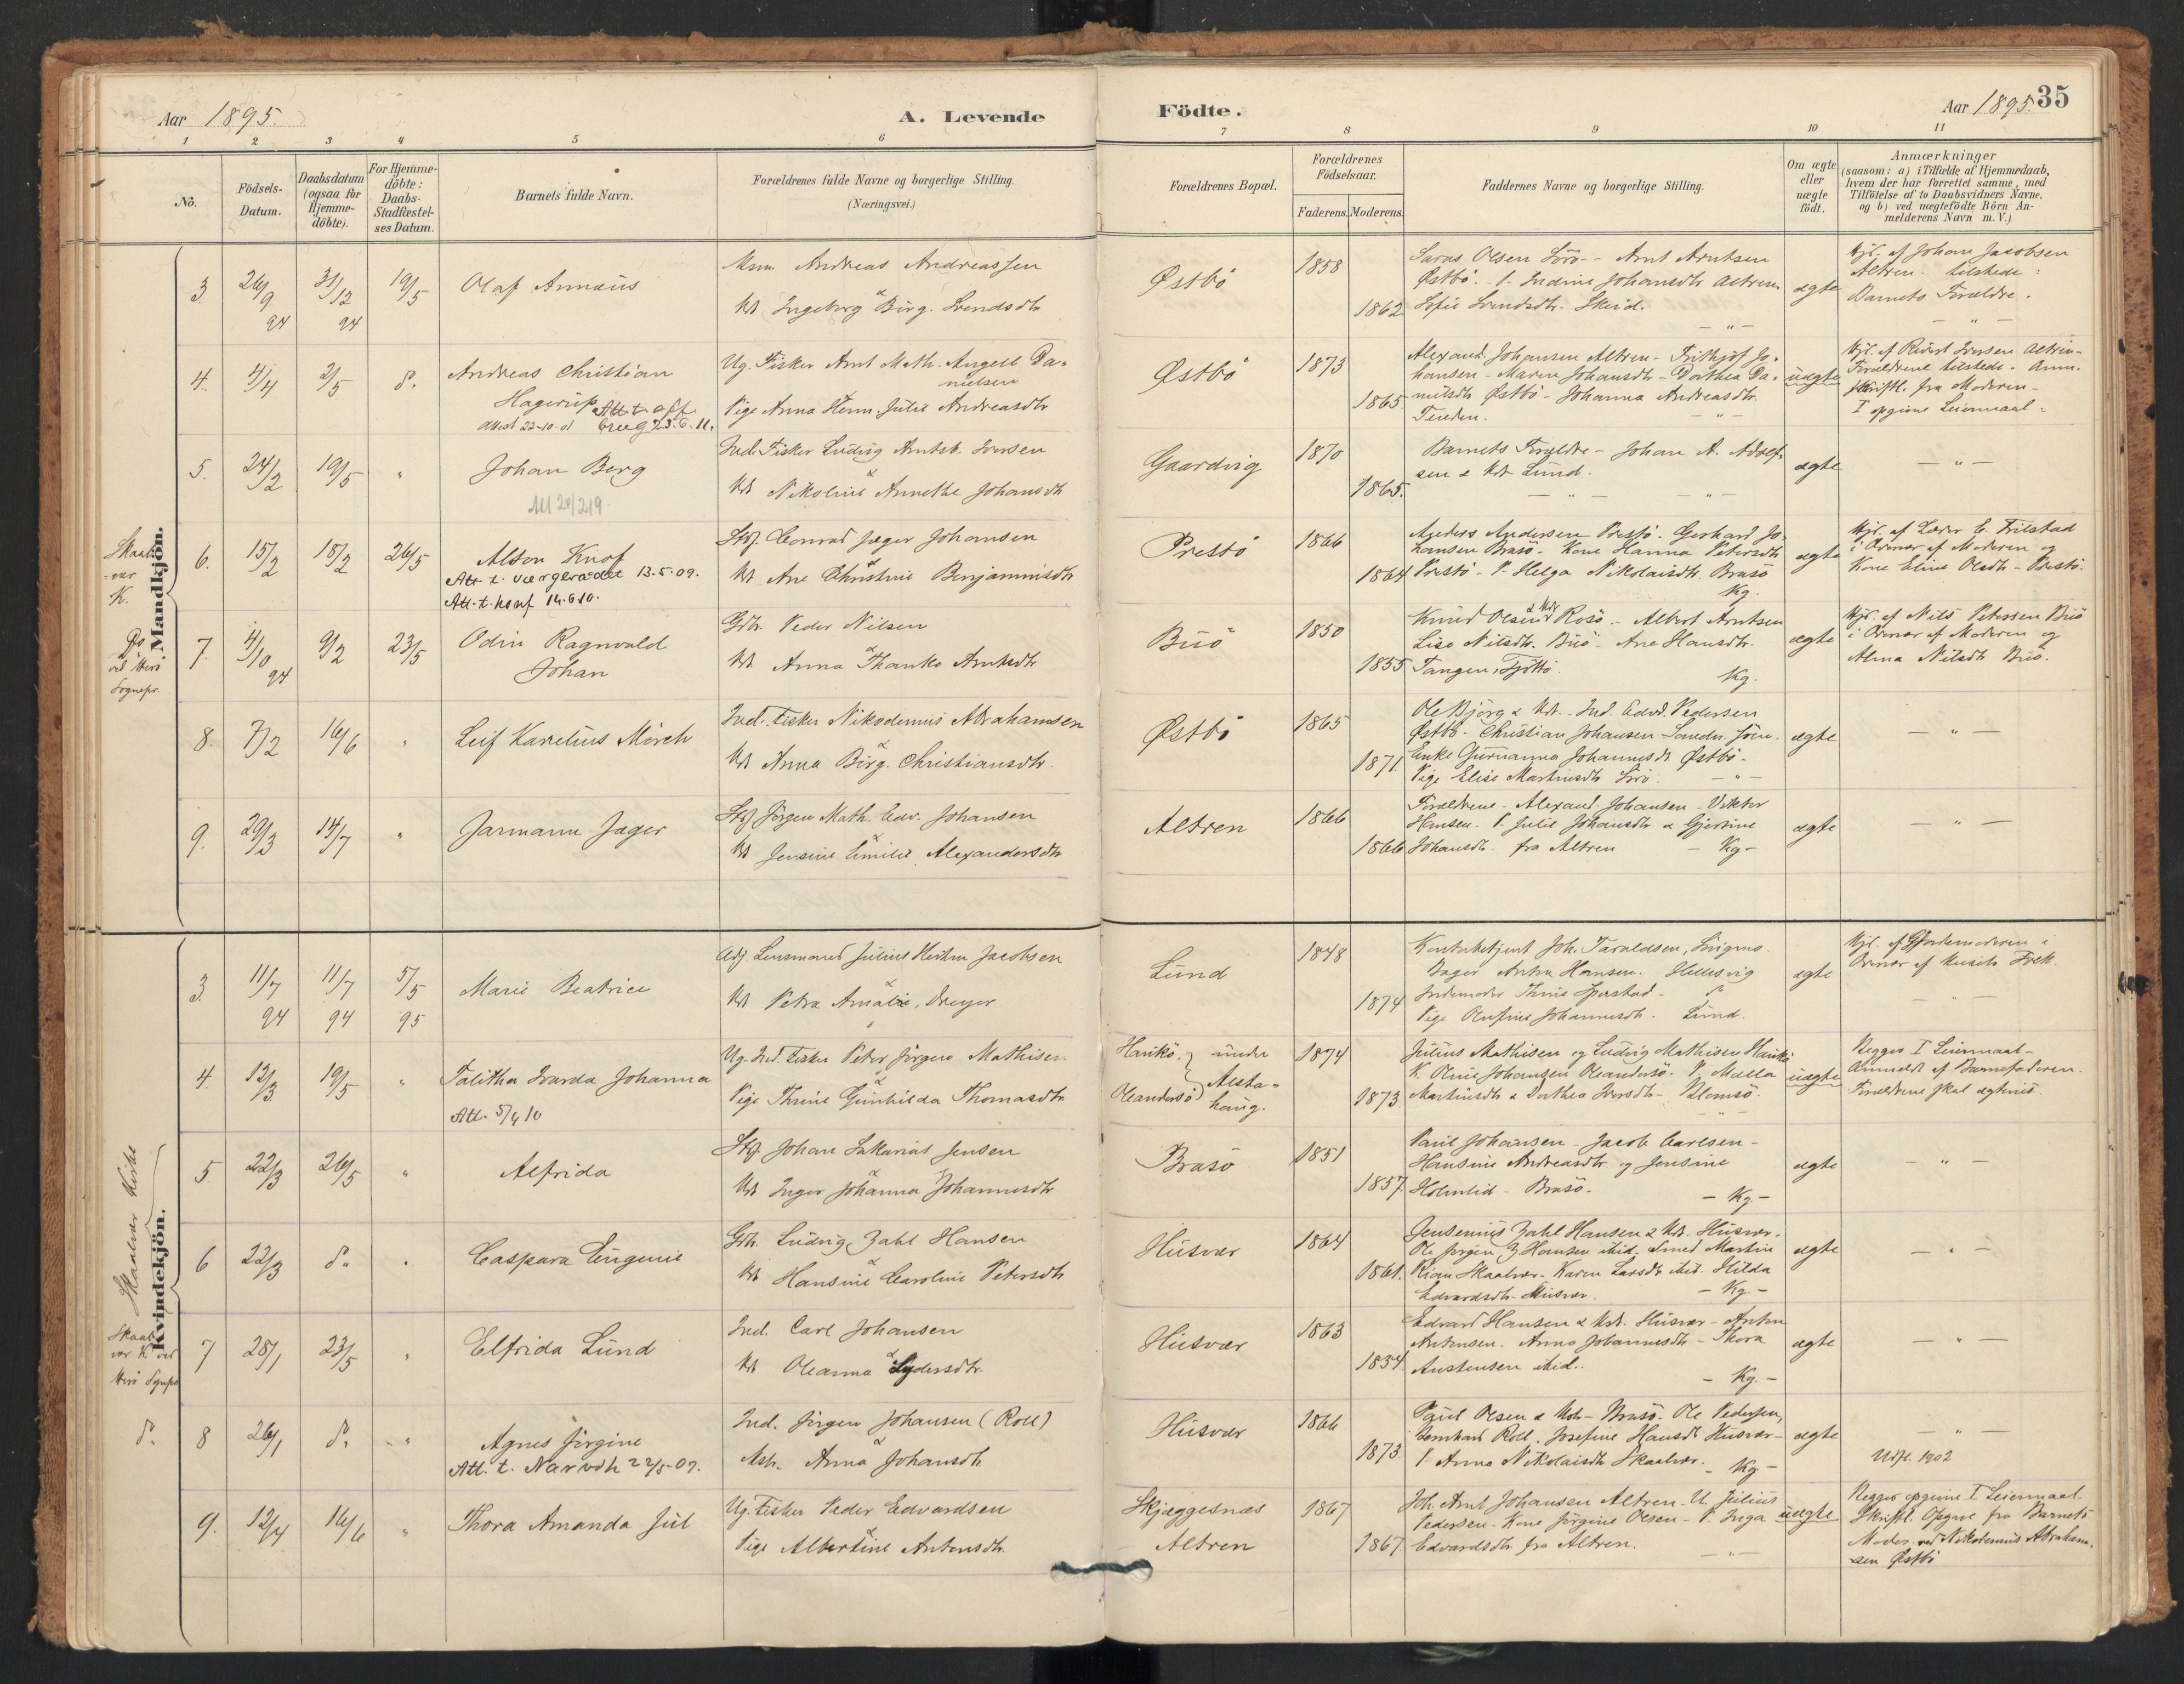 Aar 1895.
A. Levende
Födte.
Aar 1895
35
1 2 3 4 5 6 7 8 9 10 11
No.
Födsels-
Datum.
Daabsdatum
(ogsaa for
Hjemme-
döbte).
For Hjemme-
döbte:
Daabs-
Stadfæstel-
ses Datum.
Barnets fulde Navn.
Forældrenes fulde Navne og borgerlige Stilling.
(Næringsvei.)
Forældrenes Bopæl.
Forældrenes
Födselsaar.
Faderens. Moderens.
Faddernes Navne og borgerlige Stilling.
Om ægte
eller
uægte
födt.
Anmærkninger
(saasom: a) i Tilfælde af Hjemmedaab,
hvem der har forrettet samme, med
Tilföielse af to Daabsvidners Navne,
og b) ved uægtefödte Börn An-
melderens Navn m. V.)
Mandkjön.
3. 26/9 94 31/12 94 19/5
Olaf Annæus
Andreas Andreassen
Ingeborg Birg. Svendsdtr
Østbö
1858
1862
Olsen Sörö - Arnt Arntsen
Østbö. P. Indine Johansdtr Altren
Sofie Svendsdtr. Skeid.
ægte
Hjd. af Johan Jacobsen
Altren. tilstede:
Barnets Forældre.
4. 4/4 2/5 do.
Andreas Christian
Hagerup
Attest 22-10-01
Ug. Fisker Arnt Math. Angell Da-
nielsen
Pige Anna Herm. Julie Andreasdtr
Østbö
1873
1865
Alexand. Johansen Altren - Frithjof Jo-
hansen - Maren Johansdtr - Dorthea Da-
nielsdtr Østbö - Johanna Andreasdtr.
uægte
Hjd. af Rikert Iversen Altren-
Forældrene tilstede. Anm.
skriftl. fra Moderen-
I opgivne Leiermaal.
5. 24/2 19/5 "
Johan Berg
Ind. Fisker Ludvig Arntsb. Iversen
Nikoline Annethe Johansdtr
Gaardvig
1870
1865.
Barnets Forældre - Johan A. Adolf-
sen & Lund.
ægte
- " -
6. 15/2 18/2 26/5
Alson Knof
Att. t. vergeraadet 13-5-09.
Att. t. 14.6.10.
Conrad Jæger Johansen
Ane Christine Benjaminsdtr
Prestö
1866
1864
Anders Andersen Prestö. Gerhard Jo-
hansen Brasö. Kone Hanna Petersdtr
Prestö - P. Helga Nikolaisdtr. Brasö
Kg.
ægte
af Moderen og
Kone Eline Olsdtr - Prestö.
7. 4/10 94 9/2 23/5
Odin Ragnvald
Johan
Gbr. Peder Nilsen
Anna Thanke Arntsdtr
Buö
1850
1855
Knud Olsen Rosö - Albert Arntsen
Lise Nilsdtr. Buö - Ane Hansdtr.
Tangen, Tjöttö.
Kg.
ægte
Hjd. af Nils Petersen Buö
af Moderen og
Alma Nilsdtr Buö.
8. 7/2 16/6 "
Leif Karelius Mörch
Ind. Fisker Nikodemus Abrahamsen
Anna Birg. Christiansdtr.
Østbö
1865
1871.
Ole Björg & Ind. Edvd. Pedersen
Østbö. Christian Johansen
Enke Gurianna Johannesdtr Østbö-
Pige Elise Martinsdtr Sörö.
ægte
- " -
9. 29/3 14/7 "
Jarmann Jæger
Jörgen Math. Edv. Johansen
Jensine Emilie Alexandersdtr
Altren
1866
1866
Forældrene - Alexand. Johansen - Viktor
Hansen. P. Julie Johansdtr & Gjertine
Johansdtr. fra Altren - Kg -
ægte
- " -
Kvindekjön.
Skaalvær Kirke
3. 11/7 94 11/7 94 5/5 95
Marie Beatrice
Lensmand Julius Jacobsen
Petra Amalie Dreyer
Lund
1848
1874
Joh. Taraldsen,
Anton Hansen. Hellesvig
Jordemoder Thrine
Pige Olufine Johannesdtr. Lund.
ægte
4. 13/3 19/5 "
Talitha Ivarda Johanna
Att. 5/4 10
Ug. Ind. Fisker Peter Jörgen Mathisen
Pige Thrine Gunhilda Thomasdtr
Oleandersö
under
Alsta-
houg.
1874
1873
Julius Mathisen og Ludvig Mathisen
K. Oline Johansen Oleandersö. P. Malla
Martinsdtr & Dorthea Iversdtr - Blomsö.
uægte
Begges I Leiermaal-
Anmeldt af Barnefaderen.
5 22/3 26/5 "
Alfrida
Johan Sakarias Jensen
Inger Johanna Johannesdtr
Brasö
1851
1857
Paul Johansen - Jacob Carlsen-
Hansine Andreasdtr og Jensine
Holmlid - Brasö. - Kg. -
ægte
- " -
6 22/3 do. "
Caspara Eugenie
Gbr. Ludvig Zahl Hansen
Hansine Caroline Petersdtr
Husvær
1864
1861.
Jensenius Zahl Hansen & Husvær-
Ole Jörgen Z. Hansen ibid. Smed Martin
Skaalvær. Karen Larsdtr ibid. Hilda
Edvardsdtr. Husvær. - Kg. -
ægte
- " -
7 28/1 23/5 "
Elfrida Lund
Ind. Carl Johansen
Oleanna Lydersdtr.
Husvær
1863
1834
Edvard Hansen & Husvær - Anton
Antonsen. Anna Johannesdtr - Thora
Austensen ibid.. - Kg. -
ægte
- " -
do. 8 26/1 do. "
Agnes Jörgine
Att. t. Narvik 22/5-09.
Ind. Jörgen Johansen (Roll)
Anna Johansdtr
Husvær
1866
1873
Paul Olsen & Brasö. Ole Pedersen,
Bernhard Roll, Josefine Hansdtr Husvær-
P. Anna Nikolaisdtr Skaalvær. - Kg -
ægte
- " -
Udfl. 1902
9. 12/4 16/6 "
Thora Amanda Jul
Ug. Fisker Peder Edvardsen
Pige Albertine Antonsdtr.
Skjeggesnæs
Altren
1867
1867
Joh. Arnt Johansen Altren. U. Julius
Pedersen. Kone Jörgine Olsen - P. Inga
Edvardsdtr fra Altren.
uægte
Begges opgivne I Leiermaal.
Skriftl. Opgave fra Barnets
Moder ved Nikodemus Abraham-
sen Østbö